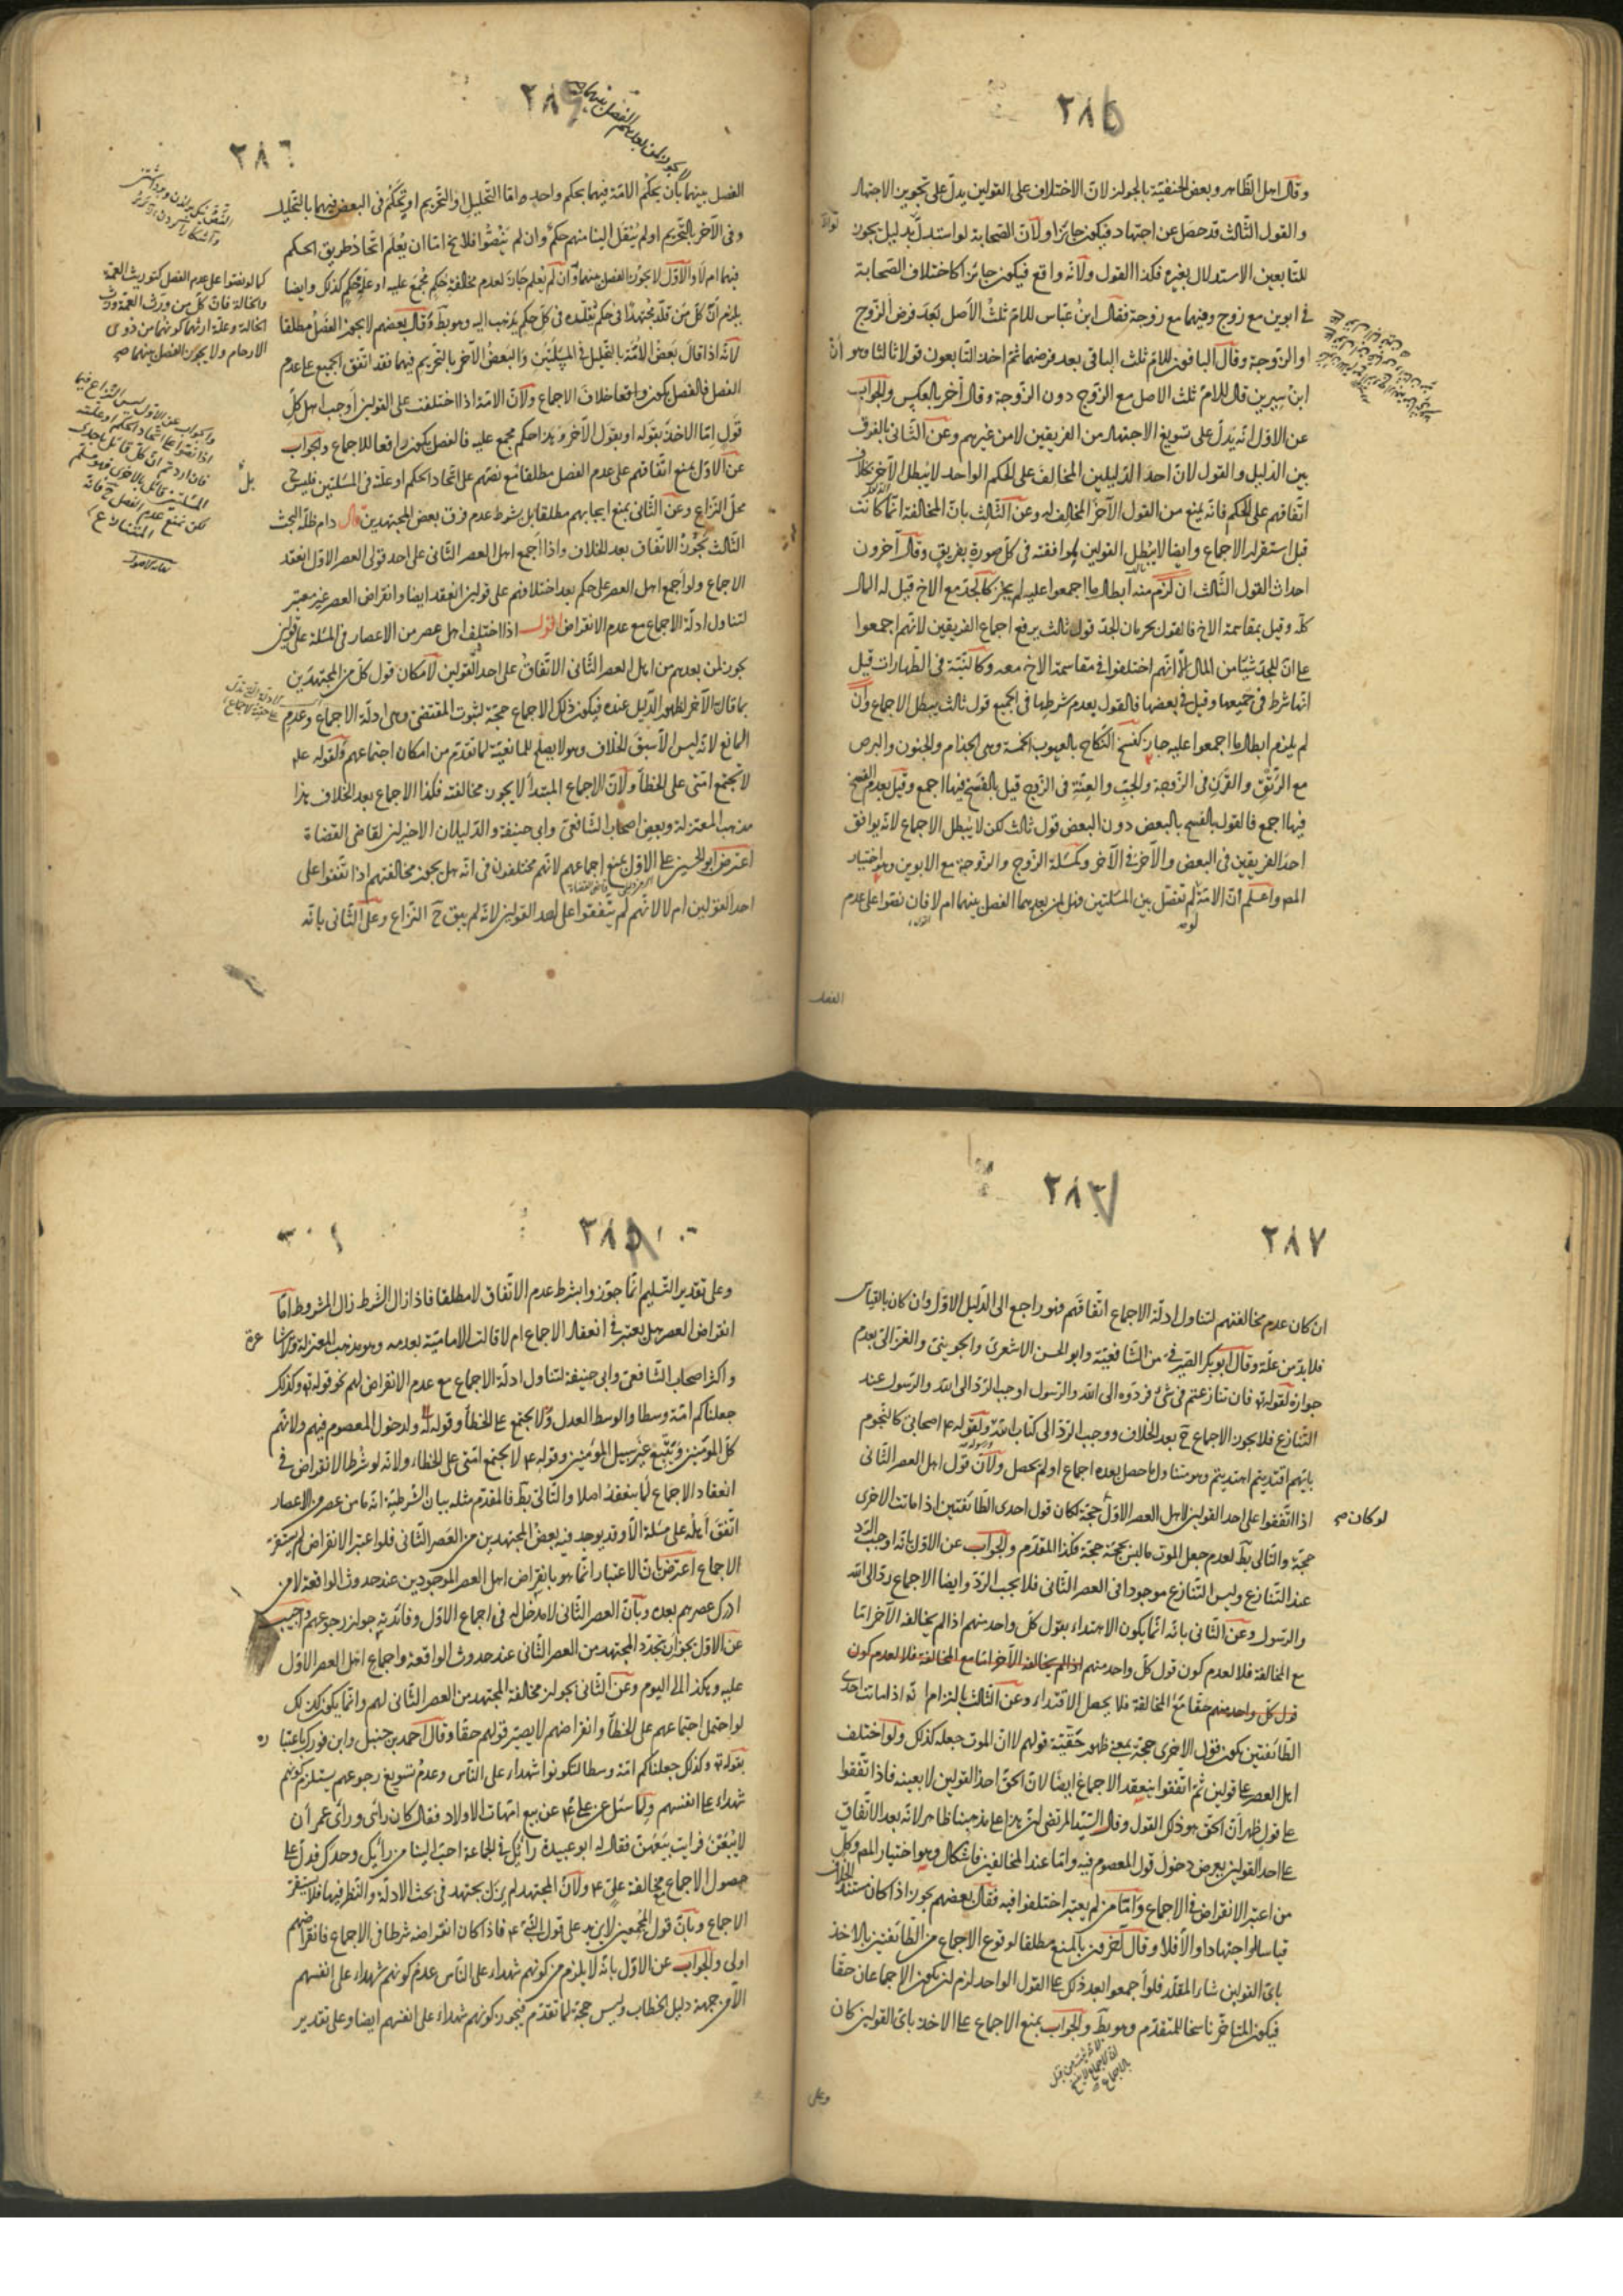 ٢٨٥
وقال اهل الظاهر وبعض الحنفية بالجواز لان الاختلاف على القولين يدل على تجويز الاجتهاد
والقول الثالث قد حصل عن اجتهاد فيكون جائزا ولان الصحابة لو استدل بدليل يجوز
للتابعين الاستدلال بغيره فكذا القول ولانه واقع فيكون جايزا كاختلاف الصحابة
في ابوين مع زوج وفيهما مع زوجة فقال ابن عباس للام ثلث الاصل بعد فرض الزوج
او الزوجة وقال الباقون للام ثلث الباقي بعد فرضهما ثم احدث التابعون قولا ثالثا وهو ان
ابن سيرين قال للام ثلث الاصل مع الزوج دون الزوجة وقال آخر بالعكس والجواب
عن الاول انه يدل على تسويغ الاجتهاد من الفريقين لا من غيرهم وعن الثاني بالفرق
بين الدليل والقول لان احد الدليلين المخالف على الحكم الواحد لا يبطل الآخر بخلاف
اتفاقهم على الحكم فانه يمنع من القول الآخر المخالف له وعن الثالث بان المخالفة انما كانت
قبل استقرار الاجماع وايضا لا يبطل القولين لموافقته في كل صورة بفريق وقال آخرون
احداث القول الثالث ان لزم منه ابطال ما اجمعوا عليه لم يجز كالجد مع الاخ قيل له المال
كله وقيل بمقاسمة الاخ فالقول بحرمان الجد قول ثالث يرفع اجماع الفريقين لانهم اجمعوا
على ان للجد شيئا من المال الا انهم اختلفوا في مقاسمة الاخ معه وكالنية في الطهارات قيل
انها شرط في جميعها وقيل في بعضها فالقول بعدم شرطها في الجميع قول ثالث يبطل الاجماع وان
لم يلزم ابطال ما اجمعوا عليه جاز كفسخ النكاح بالعيوب الخمسة وهي الجذام والجنون والبرص
مع الرتق والقرن في الزوجة والجب والعنة في الزوج قيل بالفسخ فيها اجمع وقيل بعدم الفسخ
فيها اجمع فالقول بالفسخ بالبعض دون البعض قول ثالث لكن لا يبطل الاجماع لانه يوافق
احد الفريقين في البعض والآخر في الآخر وكمسئلة الزوج والزوجة مع الابوين وهو اختيار
المص واعلم ان الامة لم تفصل بين المسئلتين فهل لمن بعدهما الفصل بينهما ام لا فان نصوا على عدم
الفصل
٢٨٦
٢٨٦
الفصل بينهما بان يحكم الامة فيهما بحكم واحد واما التحليل او التحريم او تحكم في البعض فيهما بالتحليل
وفي الآخر بالتحريم او لم ينقل الينا منهم حكم وان لم ينصوا فلا يخ اما ان يعلم اتحاد طريق الحكم
فيهما ام لا والاول لا يجوز الفصل بينهما وان لم يعلم جاز لعدم مخالفة حكم مجمع عليه او علة حكم كذلك وايضا
يلزم ان كل من قلد مجتهدا في حكم يقلده في كل حكم يذهب اليه وهو بط وقال بعضهم لا يجوز الفصل مطلقا
لانه اذا قال بعض الامة بالتحليل في المسئلتين والبعض الآخر بالتحريم فيهما فقد اتفق الجميع على عدم
الفصل فالفصل يكون واقعا خلاف الاجماع ولان الامة اذا اختلفت على القولين اوجب اهل كل
قول اما الاخذ بقوله او بقول الآخر وهذا حكم مجمع عليه فالفصل يكون رافعا للاجماع والجواب
عن الاول بمنع اتفاقهم على عدم الفصل مطلقا مع نصهم على اتحاد الحكم او علة في المسئلتين فليس ح
محل النزاع وعن الثاني بمنع ايجابهم مطلقا بل بشرط عدم فرق بعض المجتهدين قال دام ظله البحث
الثالث يجوز الاتفاق بعد الخلاف واذا اجمع اهل العصر الثاني على احد قولي العصر الاول انعقد
الاجماع ولو اجمع اهل العصر على حكم بعد اختلافهم على قولين انعقد ايضا وانقراض العصر غير معتبر
لتناول ادلة الاجماع مع عدم الانقراض اقول اذا اختلف اهل عصر من الاعصار في المسئلة على قولين
يجوز لمن بعدهم من اهل العصر الثاني الاتفاق على احد القولين لامكان قول كل من المجتهدين
بما قال الآخر لظهور الدليل عنده فيكون ذلك الاجماع حجة لثبوت المقتضي وهي ادلة الاجماع وعدم
المانع لانه ليس الا سبق الخلاف وهو لا يصلح للمانعية لما تقدم من امكان اجتماعهم ولقوله عم
لا تجتمع امتي على الخطأ ولان الاجماع المبتدأ لا يجوز مخالفته فكذا الاجماع بعد الخلاف هذا
مذهب المعتزلة وبعض اصحاب الشافعي وابي حنيفة والدليلان الاخيران لقاضي القضاة
اعترض ابو الحسين على الاول بمنع اجماعهم لانهم مختلفون في انه هل يجوز مخالفتهم اذا اتفقوا على
احد القولين ام لا لانهم لم يتفقوا على احد القولين لانه لم يبق ح النزاع وعلى الثاني بانه
كما لو نصوا على عدم الفصل كتوريث العمة
والخالة فان كل من ورث العمة ورث
الخالة وعلة ارثهما كونهما من ذوي
الارحام ولا يجوز الفصل بينهما صح
والجواب عن الاول ليس النزاع فيما
اذا نصوا على اتحاد الحكم او علته
فان اردتم ان كل قائل باحدى
المسئلتين قائل بالاخرى فهو مسلم
لكن نمنع عدم الفصل ح فانه
المتنازع
٢٨٧
٢٨٧
ان كان عدم مخالفتهم لتناول ادلة الاجماع اتفاقهم فهو راجع الى الدليل الاول وان كان بالقياس
فلا بد من علة وقال ابو بكر الصيرفي من الشافعية وابو الحسن الاشعري والجويني والغزالي بعدم
جوازه لقوله تع فان تنازعتم في شئ فردوه الى الله والرسول اوجب الرد الى الله والرسول عند
التنازع فلا يجوز الاجماع ح بعد الخلاف ووجب الرد الى كتاب الله ولقوله ع اصحابي كالنجوم
بايهم اقتديتم اهتديتم وهو متناول ما حصل بعده اجماع او لم يحصل ولان قول اهل العصر الثاني
اذا اتفقوا على احد القولين لاهل العصر الاول حجة لكان قول احدى الطائفتين اذا ماتت الاخرى
لو كان صح
حجة والتالي بط لعدم جعل الموت ما ليس بحجة حجة فكذا المقدم والجواب عن الاول بانه اوجب الرد
عند التنازع وليس التنازع موجودا في العصر الثاني فلا يجب الرد وايضا الاجماع رد الى الله
والرسول وعن الثاني بانه انما يكون الاهتداء بقول كل واحد منهم اذا لم يخالفه الآخر اما
مع المخالفة فلا لعدم كون قول كل واحد منهم اذا لم يخالفه الآخر اما مع المخالفة فلا لعدم كون
قول كل واحد منهم حقا مع المخالفة فلا يحصل الاقتداء وعن الثالث بالتزام انه اذا ماتت احدى
الطائفتين يكون قول الاخرى حجة بمعنى ظهور حقية قولهم لا ان الموت جعله كذلك ولو اختلف
اهل العصر على قولين ثم اتفقوا ينعقد الاجماع ايضا لان الحق احد القولين لا بعينه فاذا اتفقوا
على قول ظهر ان الحق هو ذلك القول وقال السيد المرتضى ان هذا على مذهبنا ظاهر لانه بعد الاتفاق
على احد القولين يعرض دخول قول المعصوم فيه واما عند المخالفين فاشكال وهو اختيار المص وكل
من اعتبر الانقراض في الاجماع واما من لم يعتبر اختلفوا فيه فقال بعضهم يجوز اذا كان مستند الخلاف
قياسا او اجتهادا والا فلا وقال آخرون بالمنع مطلقا لوقوع الاجماع من الطائفتين بالاخذ
باي القولين شاء المقلد فلو اجمعوا بعد ذلك على القول الواحد لزم ان يكون الاجماعان حقا
فيكون المتاخر ناسخا للمتقدم وهو بط والجواب بمنع الاجماع على الاخذ باي القولين كان
وعلى
٢٨٨
وعلى تقدير التسليم انما جوزوا بشرط عدم الاتفاق لا مطلقا فاذا زال الشرط زال المشروط اما
انقراض العصر هل يعتبر في انعقاد الاجماع ام لا قالت الامامية بعدمه وهو مذهب المعتزلة والاشاعرة
واكثر اصحاب الشافعي وابي حنيفة لتناول ادلة الاجماع مع عدم الانقراض لهم نحو قوله تع وكذلك
جعلناكم امة وسطا والوسط العدل ولا يجتمع على الخطأ وقوله ولدخول المعصوم فيهم ولانهم
كل المؤمنين ويتبع غير سبيل المؤمنين وقوله ع لا يجتمع امتي على الخطاء ولانه لو شرط الانقراض في
انعقاد الاجماع لما ينعقد اصلا والتالي بط فالمقدم مثله بيان الشرطية انه ما من عصر من الاعصار
اتفق اهله على مسئلة الا وقد يوجد فيه بعض المجتهدين من العصر الثاني فلو اعتبر الانقراض لم يستقر
الاجماع اعترض بان الاعتبار انما هو بانقراض اهل العصر الموجودين عند حدوث الواقعة لا من
ادرك عصرهم بعده وبان العصر الثاني لا مدخل له في اجماع الاول وفائدته جواز رجوعهم واجيب
عن الاول بجواز تجدد المجتهد من العصر الثاني عند حدوث الواقعة واجماع اهل العصر الاول
عليه وهكذا الى اليوم وعن الثاني بجواز مخالفة المجتهد من العصر الثاني لهم وانما يكون كذلك
لو احتمل اجتماعهم على الخطأ وانقراضهم لا يصير قولهم حقا وقال احمد بن حنبل وابن فورك باعتباره
بقوله تع وكذلك جعلناكم امة وسطا لتكونوا شهداء على الناس وعدم تسويغ رجوعهم يستلزم كونهم
شهداء على انفسهم ولما سئل عن علي ع عن بيع امهات الاولاد فقال كان رأيي ورأى عمر ان
لا يبعن فرايت بيعهن فقال له ابو عبيدة رأيك في الجماعة احب الينا من رأيك وحدك فدل على
حصول الاجماع مع مخالفة علي ع ولان المجتهد لم يزل يجتهد في بحث الادلة والنظر فيها فلا يستقر
الاجماع وبان قول المجمعين لا يزيد على قول النبي ع فاذا كان انقراضه شرطا في الاجماع فانقراضهم
اولى والجواب عن الاول بانه لا يلزم من كونهم شهداء على الناس عدم كونهم شهداء على انفسهم
الا من جهة دليل الخطاب وليس حجة لما تقدم فيجوز كونهم شهداء على انفسهم ايضا وعلى تقدير